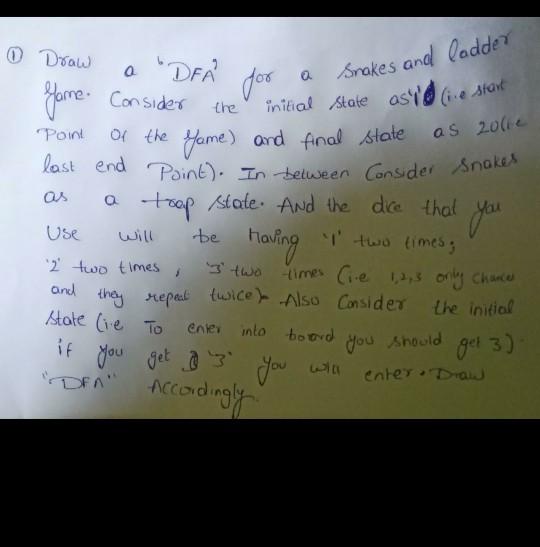 ① Draw a "DFA" for a snakes and ladder
Game. Consider the initial state as '1' (i.e start
Point of the game) and final state as 20 (i.e
last end Point). In between Consider snakes
as a trap state. And the dice that you
Use will be having '1' two times,
'2' two times, '3' two times (i.e 1,2,3 only chances
and they repeat twice). Also Consider the initial
state (i.e To enter into board you should get 3).
if you get '3' you will enter. Draw
"DFA" Accordingly.